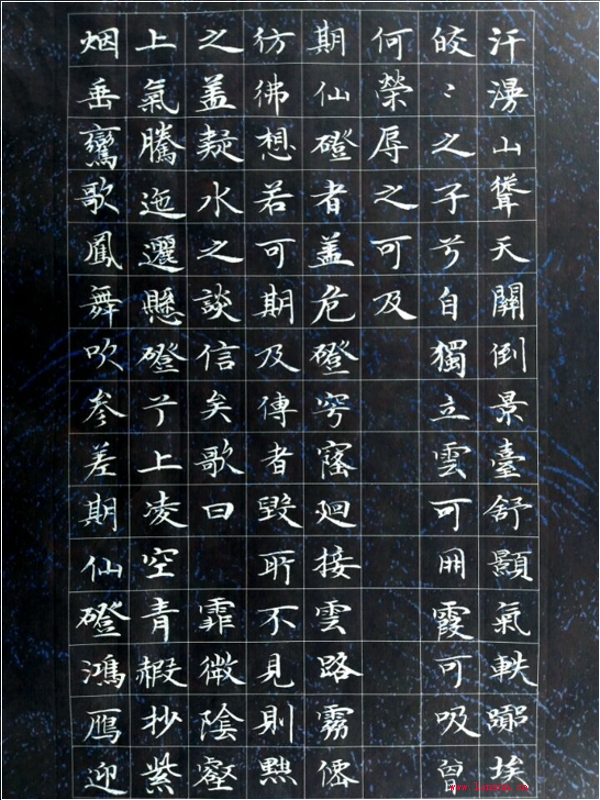 汗漫山聳天關倒景臺舒顥氣軼埃
皎〻之子兮自獨立雲可朋霞可吸曾
何榮辱之可及
期仙磴者盖危磴穹窿迴接雲路霧僊
彷彿想若可期及傳者毀所不見則黜
之盖疑水之談信矣歌曰 霏微陰壑
上氣騰迤邐懸磴兮上凌空青赮抄紫
烟垂鸞歌鳳舞吹参差期仙磴鴻鴈迎